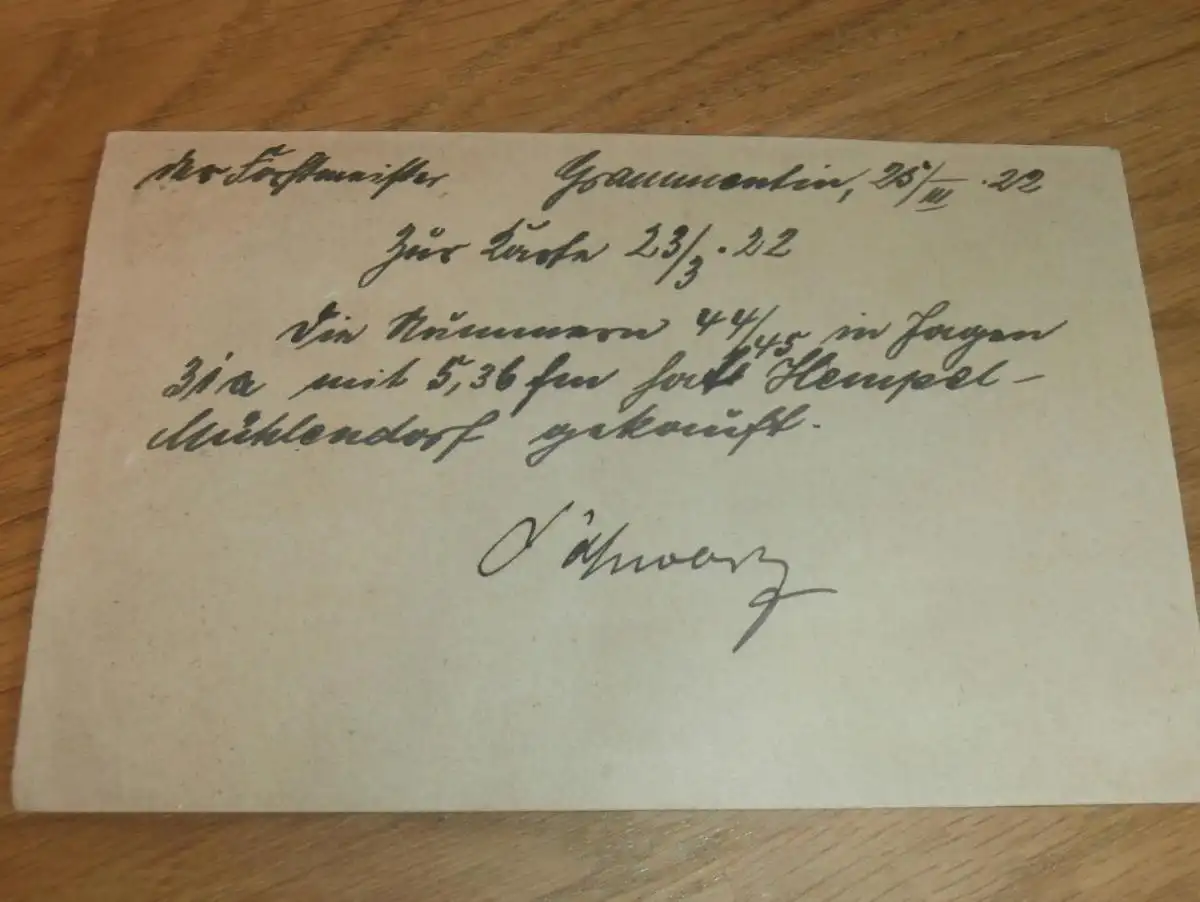 Der Forstmeister. Grammentin, 25/III.22
Zur Karte 23/3.22
Die Nummern 44/45 in Jagen
31a mit 5,36 fm hat Hempel-
Mühlendorf gekauft.
Schwartz